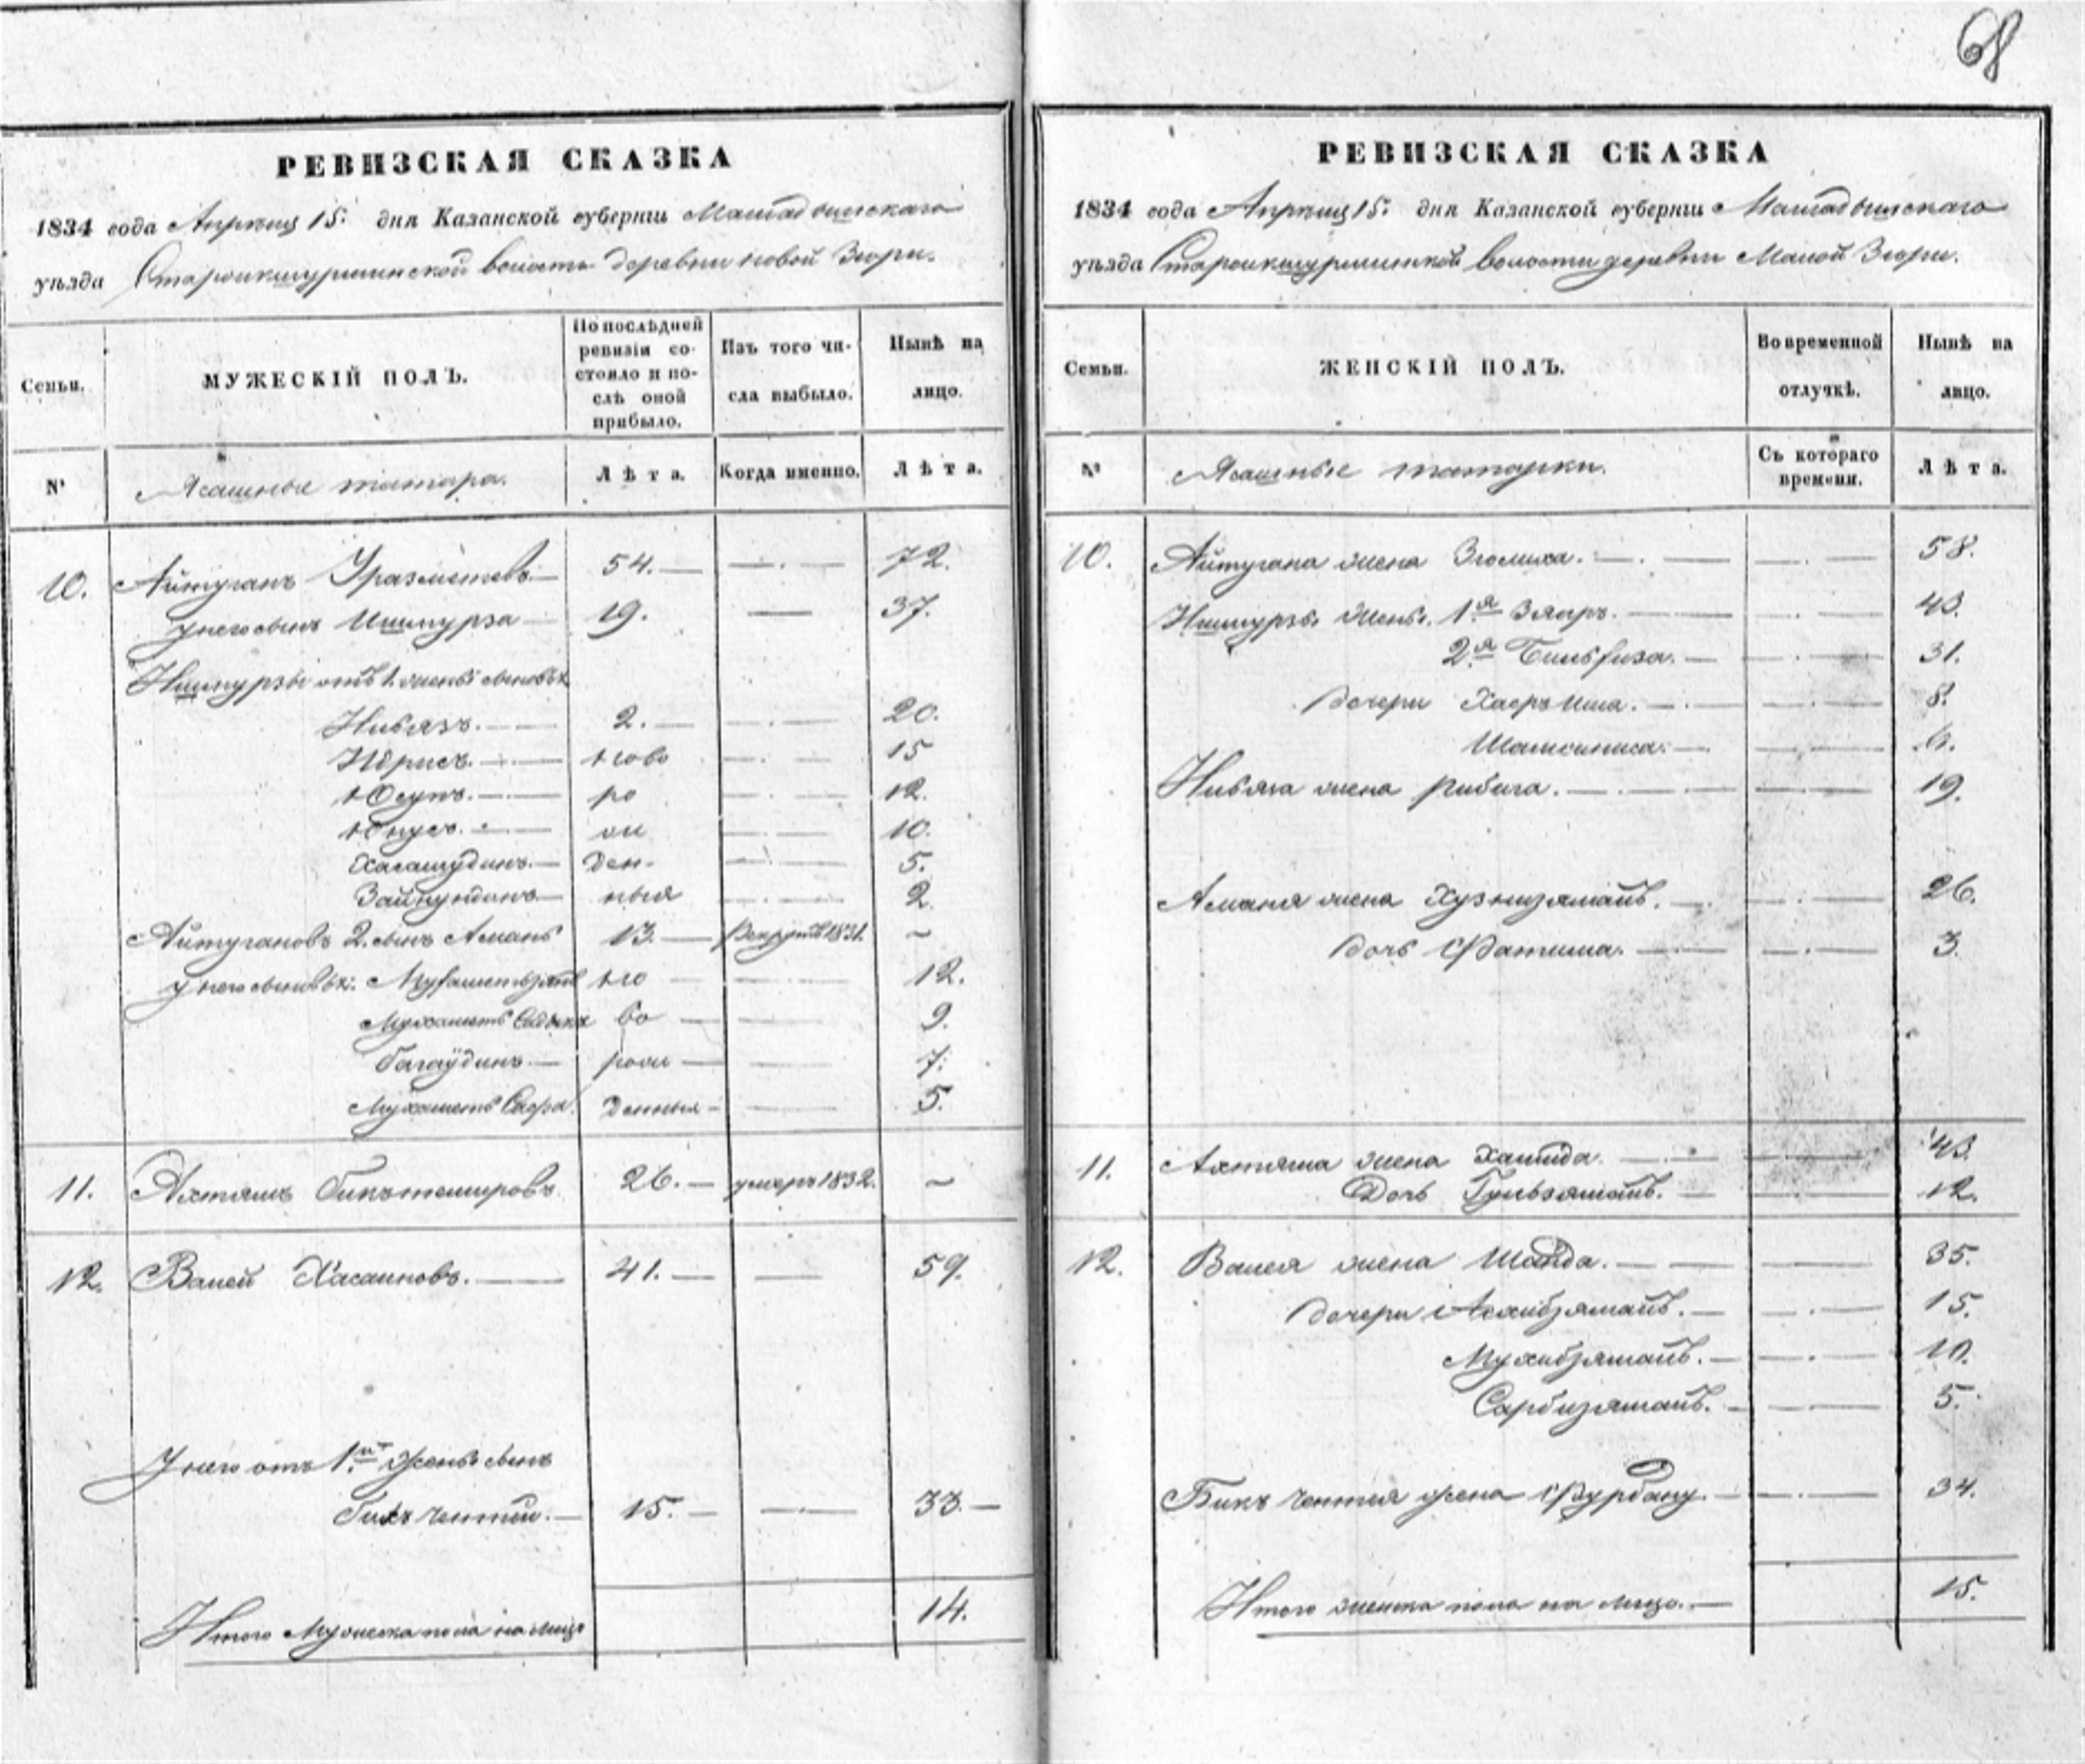 68
РЕВИЗСКАЯ СКАЗКА
1834 года Апрѣля 15. дня Казанской губерніи Мамадышскаго
уѣзда Староикшурминской волости деревни новой Зюри.
Семьи.
МУЖЕСКІЙ ПОЛЪ.
По послѣдней ревизіи состояло и послѣ оной прибыло.
Изъ того числа выбыло.
Нынѣ на лицо.
№
Ясашные татара.
Лѣта.
Когда именно.
Лѣта.
10. Айтуганъ Уразметевъ. — 54. — —.— 72.
у него сынъ Ишмурза — 19. — 37.
Ишмурзы отъ 1. жены сыновья
Ниязъ. — 2. — —.— 20.
Идрисъ. — ново —.— 15
Юсупъ. — ро —.— 12.
Юнусъ. — ж —.— 10.
— ден- —.— 5.
— ныя —.— 2.
Айтугановъ 2. сынъ Аманъ 13. — Рекрутъ 1831. ~
у него сыновья: — но — 12.
Мухаметъ Садыкъ во — 9.
Багаудинъ. — рож — 7.
Мухаметъ Сафа. денныя — 5.
11. Ахтямъ Бикътемировъ 26. — умеръ 1832. ~
12. Валей Хасановъ. — 41. — — 59.
У него отъ 1й жены сынъ
Бикъ Чентей. — 15. — —.— 33. —
Итого мужеска пола на лицо 14.
РЕВИЗСКАЯ СКАЗКА
1834 года Апрѣля 15. дня Казанской губерніи Мамадышскаго
уѣзда Староикшурминской волости деревни Малой Зюри.
Семьи.
ЖЕНСКІЙ ПОЛЪ.
Во временной отлучкѣ.
Нынѣ на лицо.
№
Ясашные татарки.
Съ котораго времени.
Лѣта.
10. Айтугана жена Зюлиха. — —.— 58.
Ишмурзы жены. 1я — —.— 43.
2я — —.— 31.
Дочери — —.— 8.
— —.—
Нияза жена Рабига. — —.— 19.
Аманя жена Хузнизямалъ. — —.— 26.
Дочь Фатима. — —.— 3.
11. Ахтяма жена Хамида. — —.— 43.
Дочь Гульзямалъ. — —.— 12.
12. Валея жена — — 35.
Дочери — —.— 15.
Мухибзямалъ. — —.— 10.
Сарбизямалъ. — —.— 5.
Бикъ Чентея жена — —.— 34.
Итого женска пола на лицо. — 15.